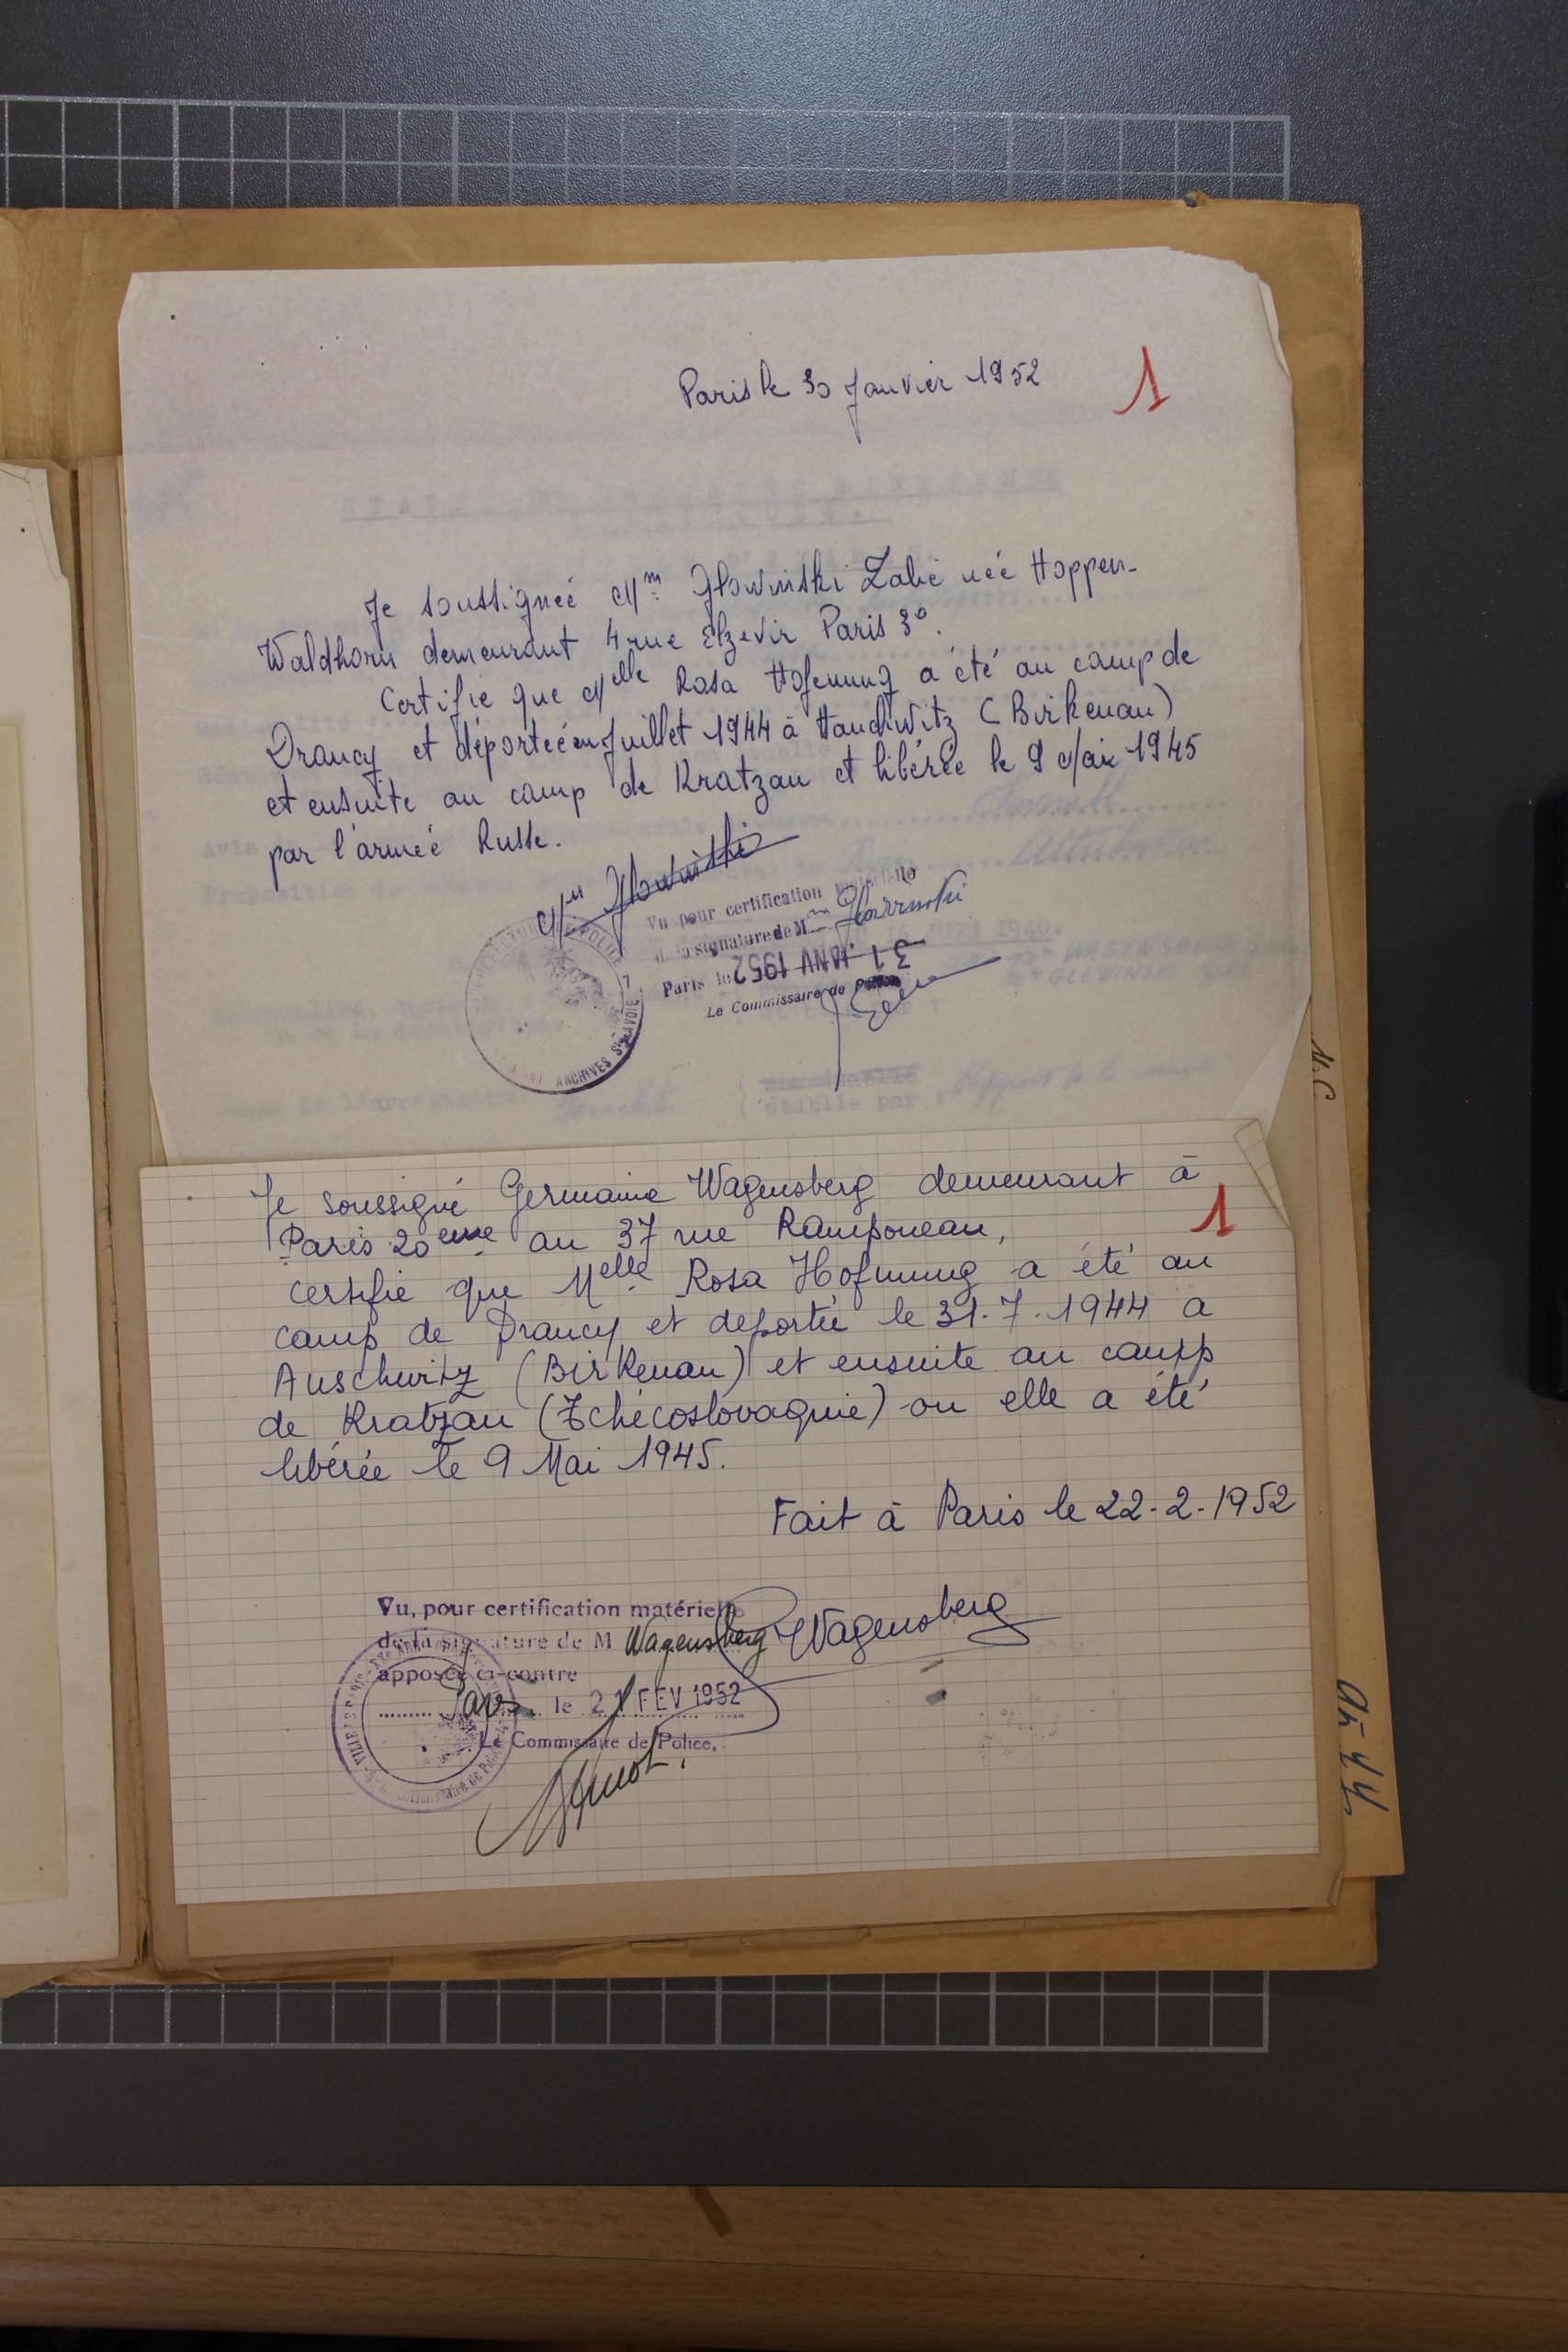 Paris le 30 Janvier 1952
1
Je soussigneé Mme Glowinski Zalie neé Hoppen-
Waldhorn demeurant 4 rue Elzevir Paris 3e.
Certifie que Melle Rosa Hofenung a été au camp de
Drancy et déporteé en Juillet 1944 à Hauchwitz (Birkenau)
et ensuite au camp de Kratzau et libérée le 9 Mai 1945
par l'armeé Russe.
Mme Glowinski
Vu pour certification matérielle
de la signature de Mme Glowinski
Paris le 31 JANV 1952
Le Commissaire de Police
ARCHIVES Ste AVOIE
établie par :
M.C.
Je soussigné Germaine Wagensberg demeurant à
Paris 20eme au 37 rue Ramponeau,
1
certifie que Melle Rosa Hofnung a été au
camp de Drancy et deportée le 31.7.1944 a
Auschwitz (Birkenau) et ensuite au camp
de Kratzau (Tchécoslovaquie) ou elle a été
libérée le 9 Mai 1945.
Fait à Paris le 22-2-1952
Vu, pour certification matérielle
de la signature de M Wagensberg
Wagensberg
apposée ci-contre
Paris le 21 FEV 1952
Le Commissaire de Police.